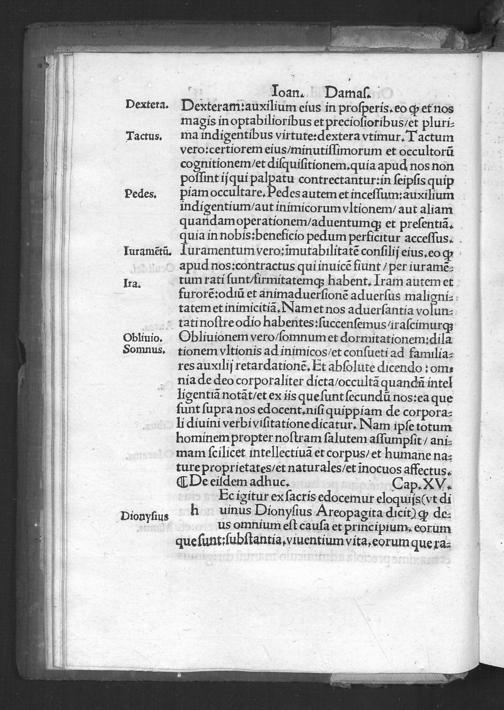 Ioan. Damas.
Dextera.
Dexteram:auxilium eius in prosperis. eo ꝙ et nos
magis in optabilioribus et preciosioribus/et pluri-
Tactus.
ma indigentibus virtute:dextera vtimur. Tactum
vero:certiorem eius/minutissimorum et occultorū
cognitionem/et disquisitionem. quia apud nos non
possint ij qui palpatu contrectantur:in seipsis quip
Pedes.
piam occultare. Pedes autem et incessum:auxilium
indigentium/aut inimicorum vltionem/aut aliam
quandam operationem/aduentumqꝫ et presentiā.
quia in nobis:beneficio pedum perficitur accessus.
Iuramētū.
Iuramentum vero;imutabilitatē consilij eius. eo ꝙ
apud nos:contractus qui inuicē fiunt/per iuramē-
Ira.
tum rati sunt/firmitatemqꝫ habent. Iram autem et
furorē:odiū et animaduersionē aduersus maligni-
tatem et inimicitiā. Nam et nos aduersantia volun-
tati nostre odio habentes:succensemus/irascimurqꝫ
Obliuio.
Obliuionem vero/somnum et dormitationem:dila
Somnus.
tionem vltionis ad inimicos/et consueti ad familia-
res auxilij retardationē. Et absolute dicendo:om-
nia de deo corporaliter dicta/occultā quandā intel
ligentiā notāt/et ex iis que sunt secundū nos:ea que
sunt supra nos edocent. nisi quippiam de corpora-
li diuini verbi visitatione dicatur. Nam ipse totum
hominem propter nostram salutem assumpsit/ani-
mam scilicet intellectiuā et corpus/et humane na-
ture proprietates/et naturales/et inocuos affectus.
¶De eisdem adhuc. Cap. XV.
Ec igitur ex sacris edocemur eloquijs(vt di
Dionysius
h uinus Dionysius Areopagita dicit)ꝙ de-
us omnium est causa et principium. eorum
que sunt:substantia, viuentium vita, eorum que ra-